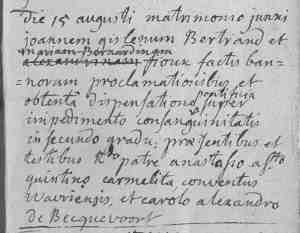 Die 15 augusti matrimonio junxi
joannem gislenum Bertrand et
mariam Bernardinam
fioux factis ban-
=norum proclamationibus et
pontificia
obtenta dispensatione super
impedimento consanguinitatis
in secundo gradu; præsentibus et
testibus Rdo patre anastasio a sto
quintino carmelita conventus
Wavriensis, et carolo alexandro
de Becquevoort